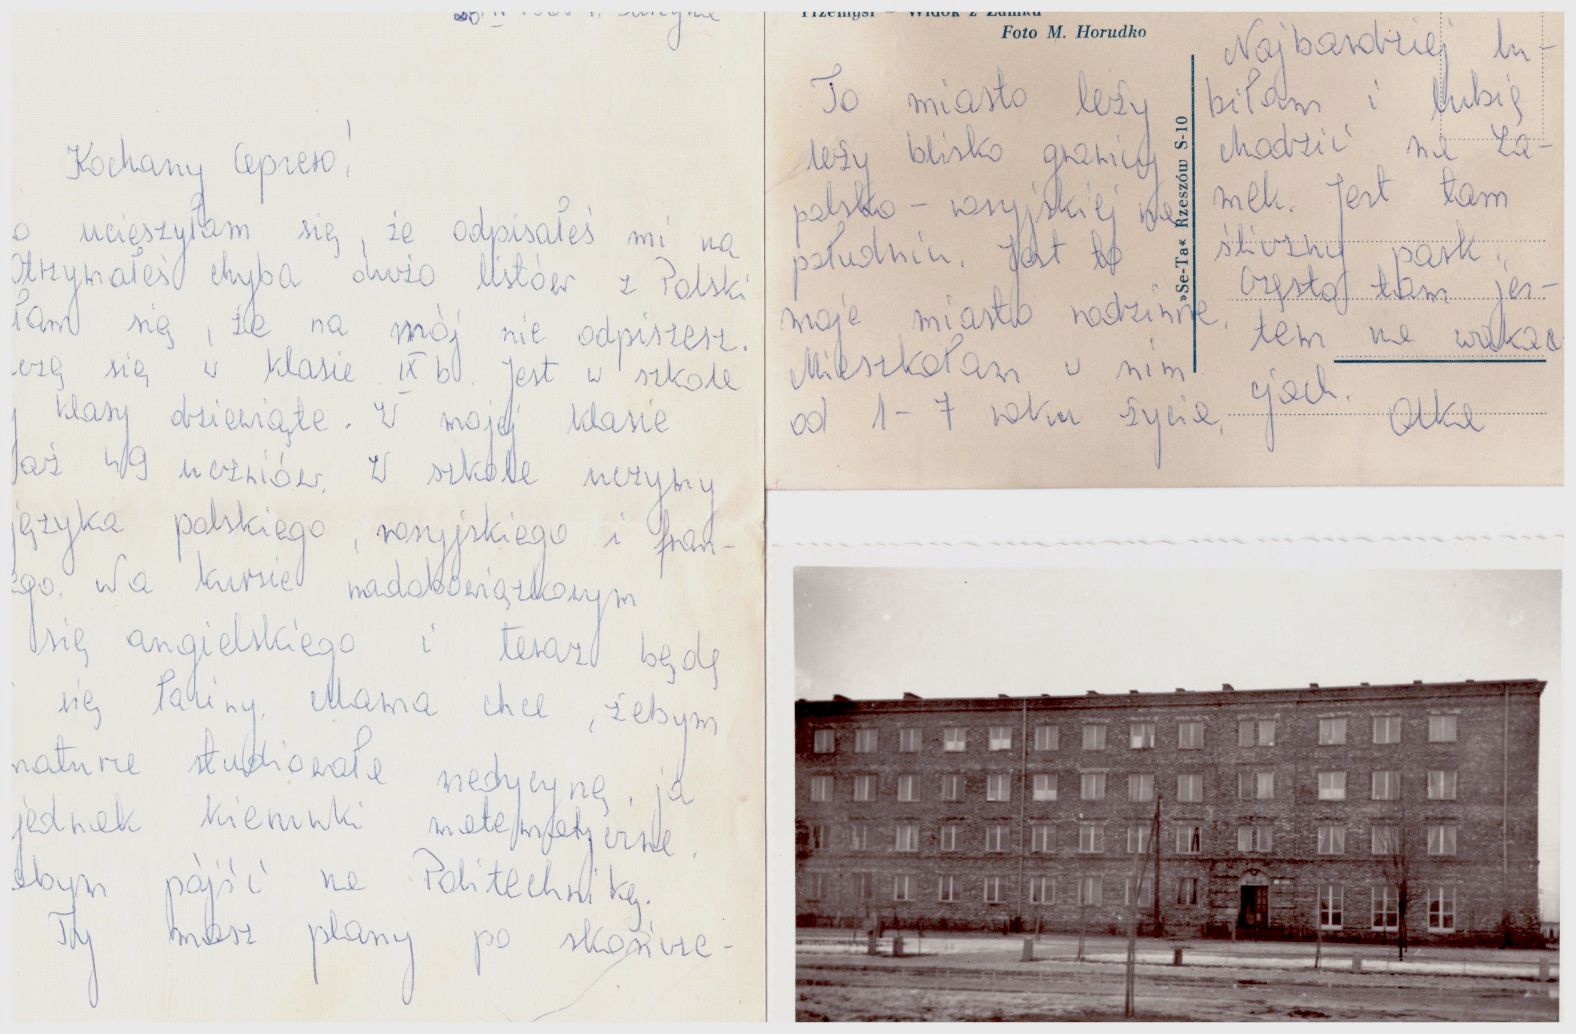 Kochany
o ucieszyłam się, że odpisałeś mi na
Otrzymałeś chyba dużo listów z Polski
łam się, że na mój nie odpiszesz.
czę się w klasie IX b. Jest w szkole
klasy dziewiąte. W mojej klasie
aż 49 uczniów. W szkole uczymy
języka polskiego, rosyjskiego i fran-
ego. Na kursie nadobowiązkowym
się angielskiego i teraz będę
się łaciny. Mama chce, żebym
maturze studiowała medycynę, ja
jednak kierunki matematyczne.
abym pójść na Politechnikę.
Ty masz plany po skończe-
Przemyśl – Widok z Zamku
Foto M. Horudko
»Se-Ta« Rzeszów S-10
To miasto leży
leży blisko granicy
polsko - rosyjskiej na
południu. Jest to
moje miasto rodzinne.
Mieszkałam w nim
od 1-7 roku życia.
Najbardziej lu-
biłam i lubię
chodzić na Za-
mek. Jest tam
śliczny park.
Często tam jes-
tem na waka
cjach.
Alka